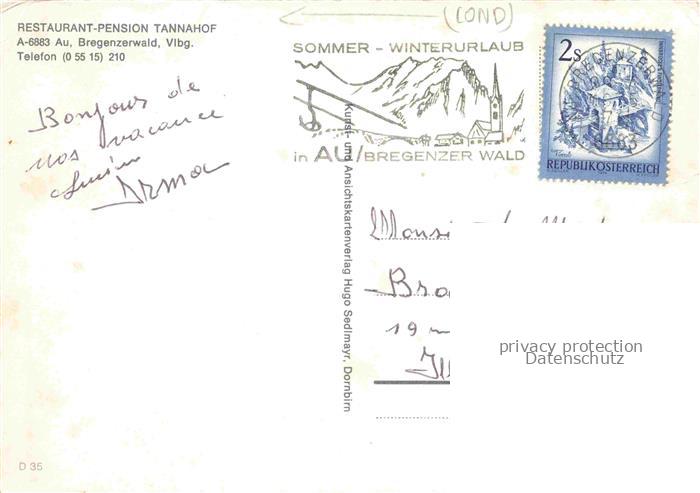 (COND)
RESTAURANT-PENSION TANNAHOF
A-6883 Au, Bregenzerwald, Vlbg.
Telefon (0 55 15) 210
SOMMER - WINTERURLAUB
in AU/BREGENZER WALD
2s
REPUBLIK ÖSTERREICH
Bonjour de
nos vacance
Irma
Kunst- und Ansichtskartenverlag Hugo Sedlmayr, Dornbirn
Monsi
Bra
19
privacy protection
Datenschutz
D 35